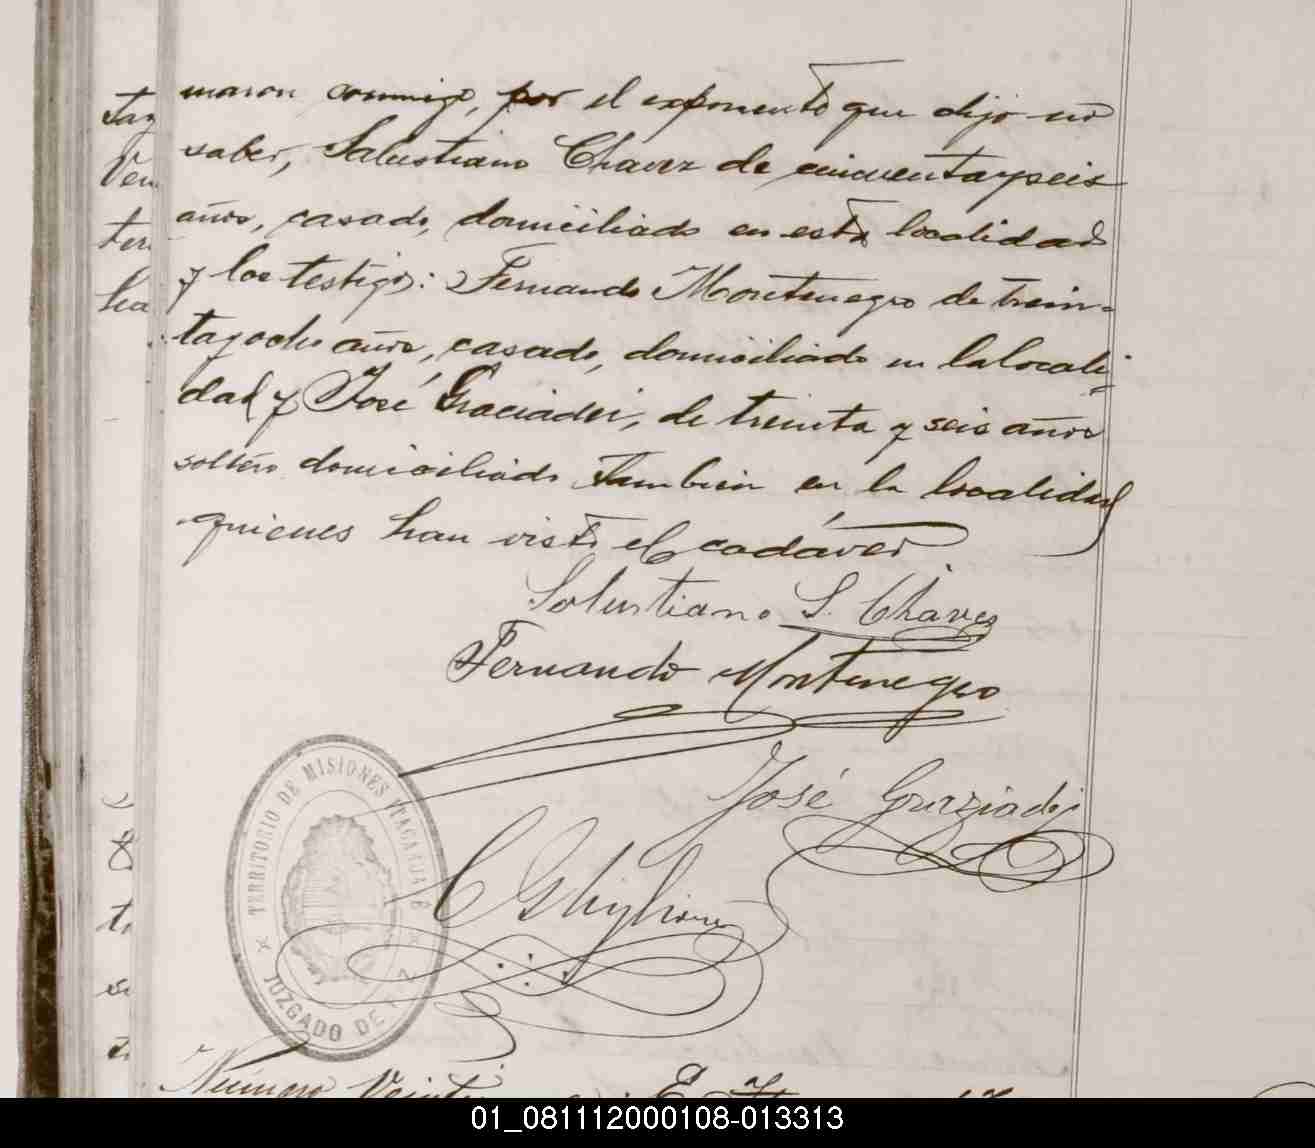 maron conmigo, por el exponente que dijo no
saber, Salustiano Chavez de cincuenta y seis
años, casado, domiciliado en esta localidad
y los testigos: Fernando Montenegro de trein-
ta y ocho años, casado, domiciliado en la locali-
dad y José Graciadei, de treinta y seis años
soltero domiciliado tambien en la localidad
quienes han visto el cadáver.
Solustiano S. Chaves
Fernando Montenegro
José Graziadei
C Ghiglione
TERRITORIO DE MISIONES
JUZGADO DE
Número Veinti
01_081112000108-013313